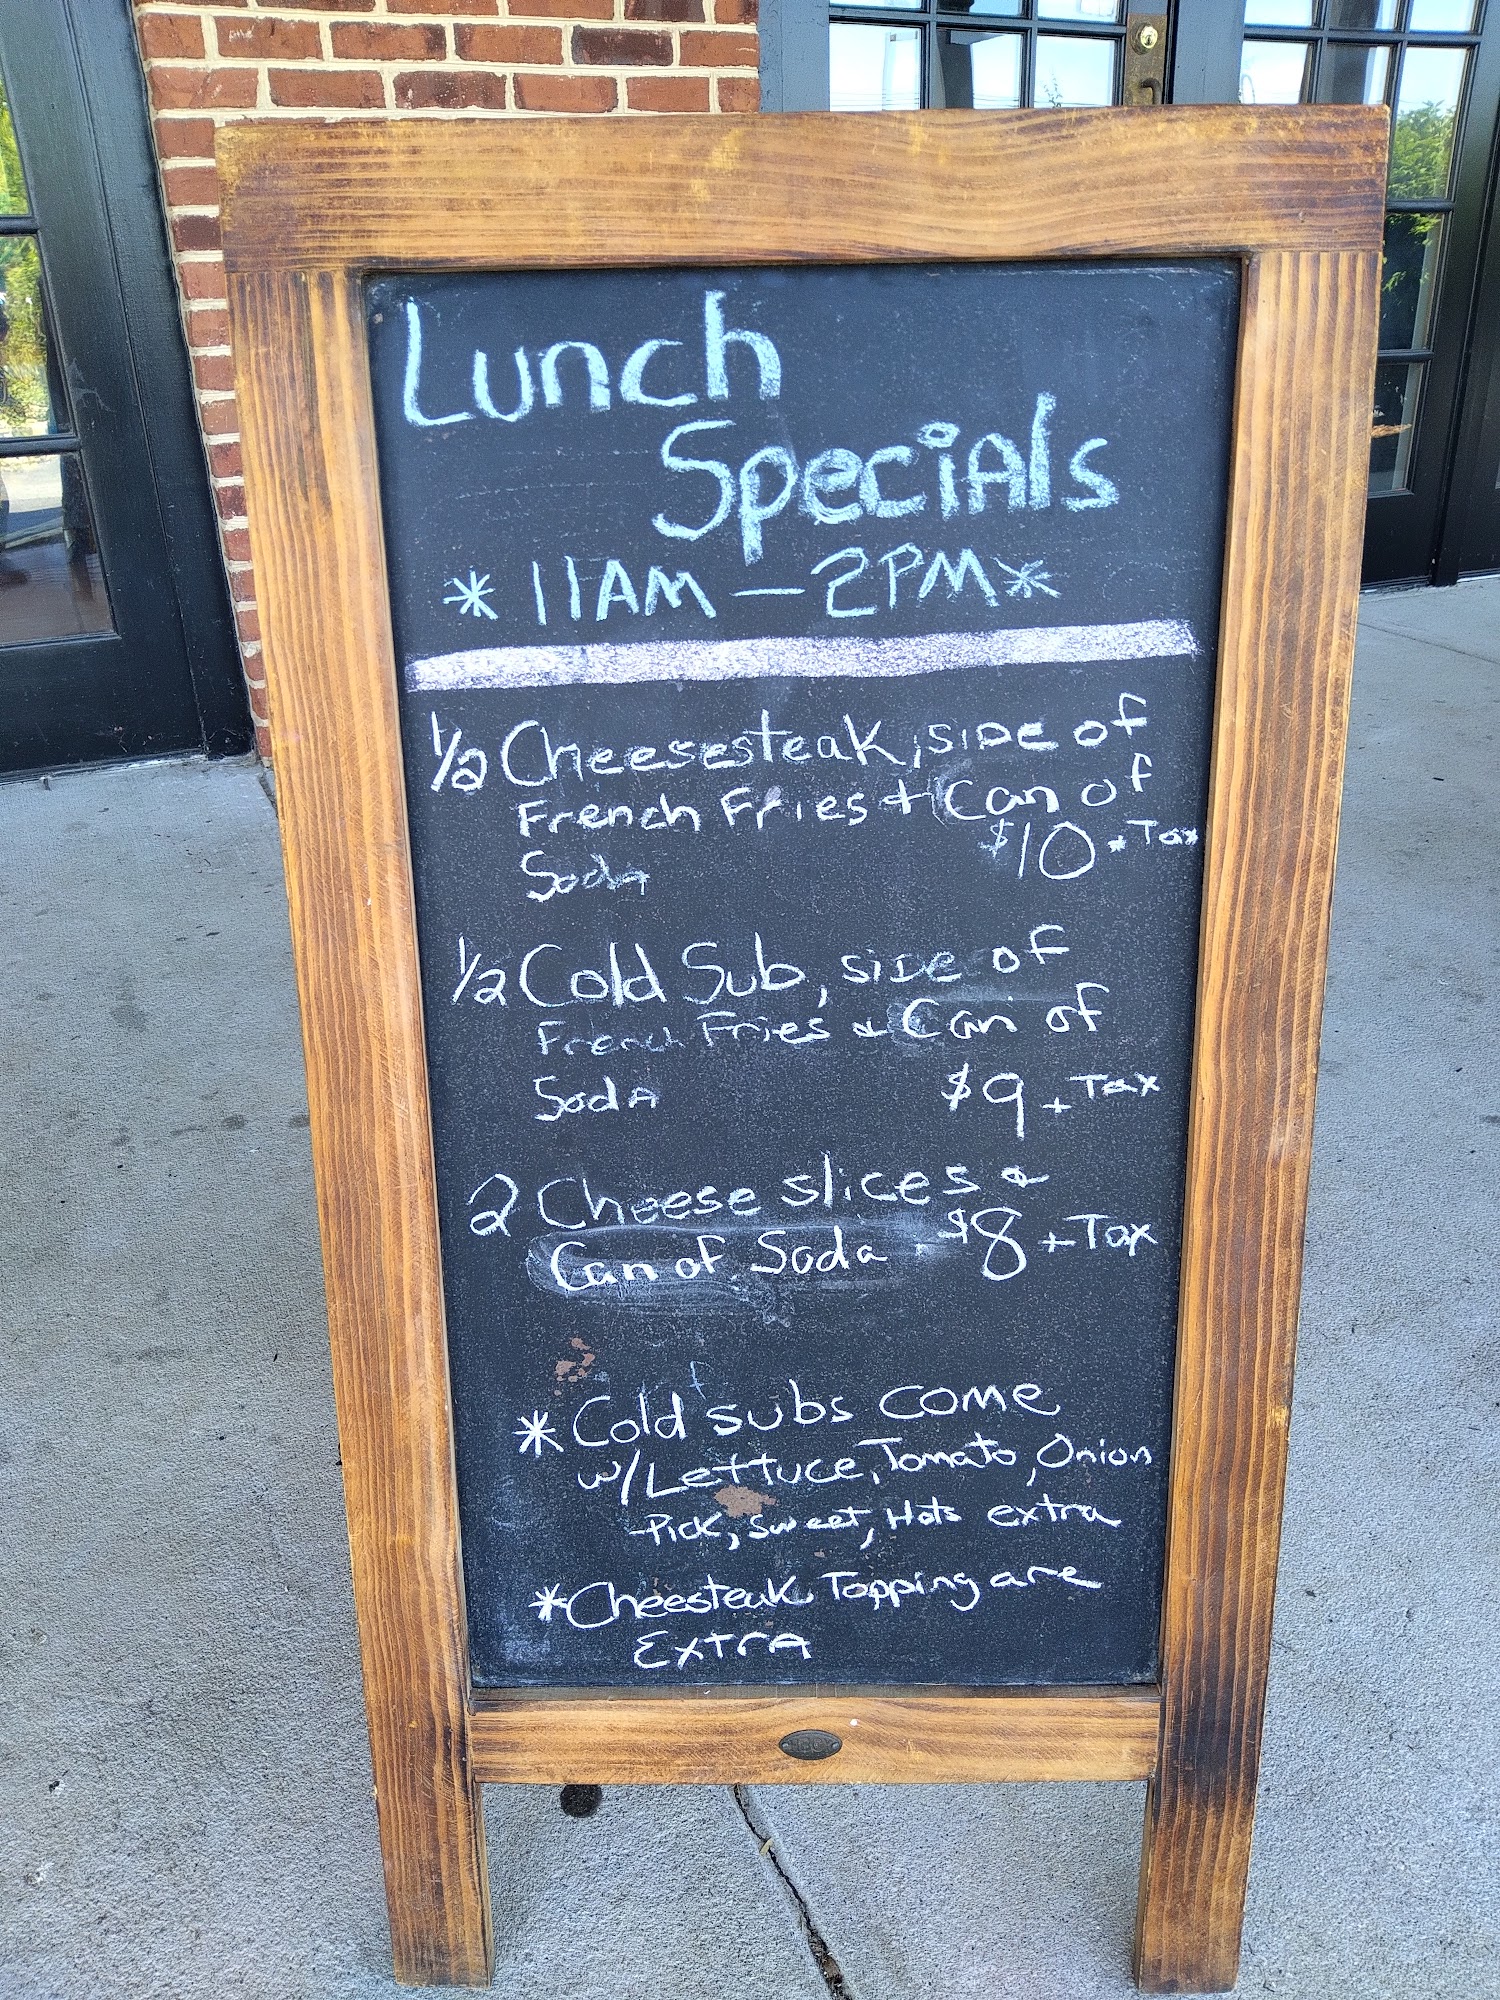 Lunch
Specials
*11AM - 2PM*
1/2 Cheesesteak, side of
French Fries + Can of
$10 + Tax
Soda
1/2 Cold Sub, side of
French Fries & Can of
Soda $9 + Tax
2 Cheese slices &
Can of Soda $8 + Tax
* Cold subs come
w/Lettuce, Tomato, Onion
-Pick, Sweet, Hots extra
*Cheesteak Topping are
EXTRA